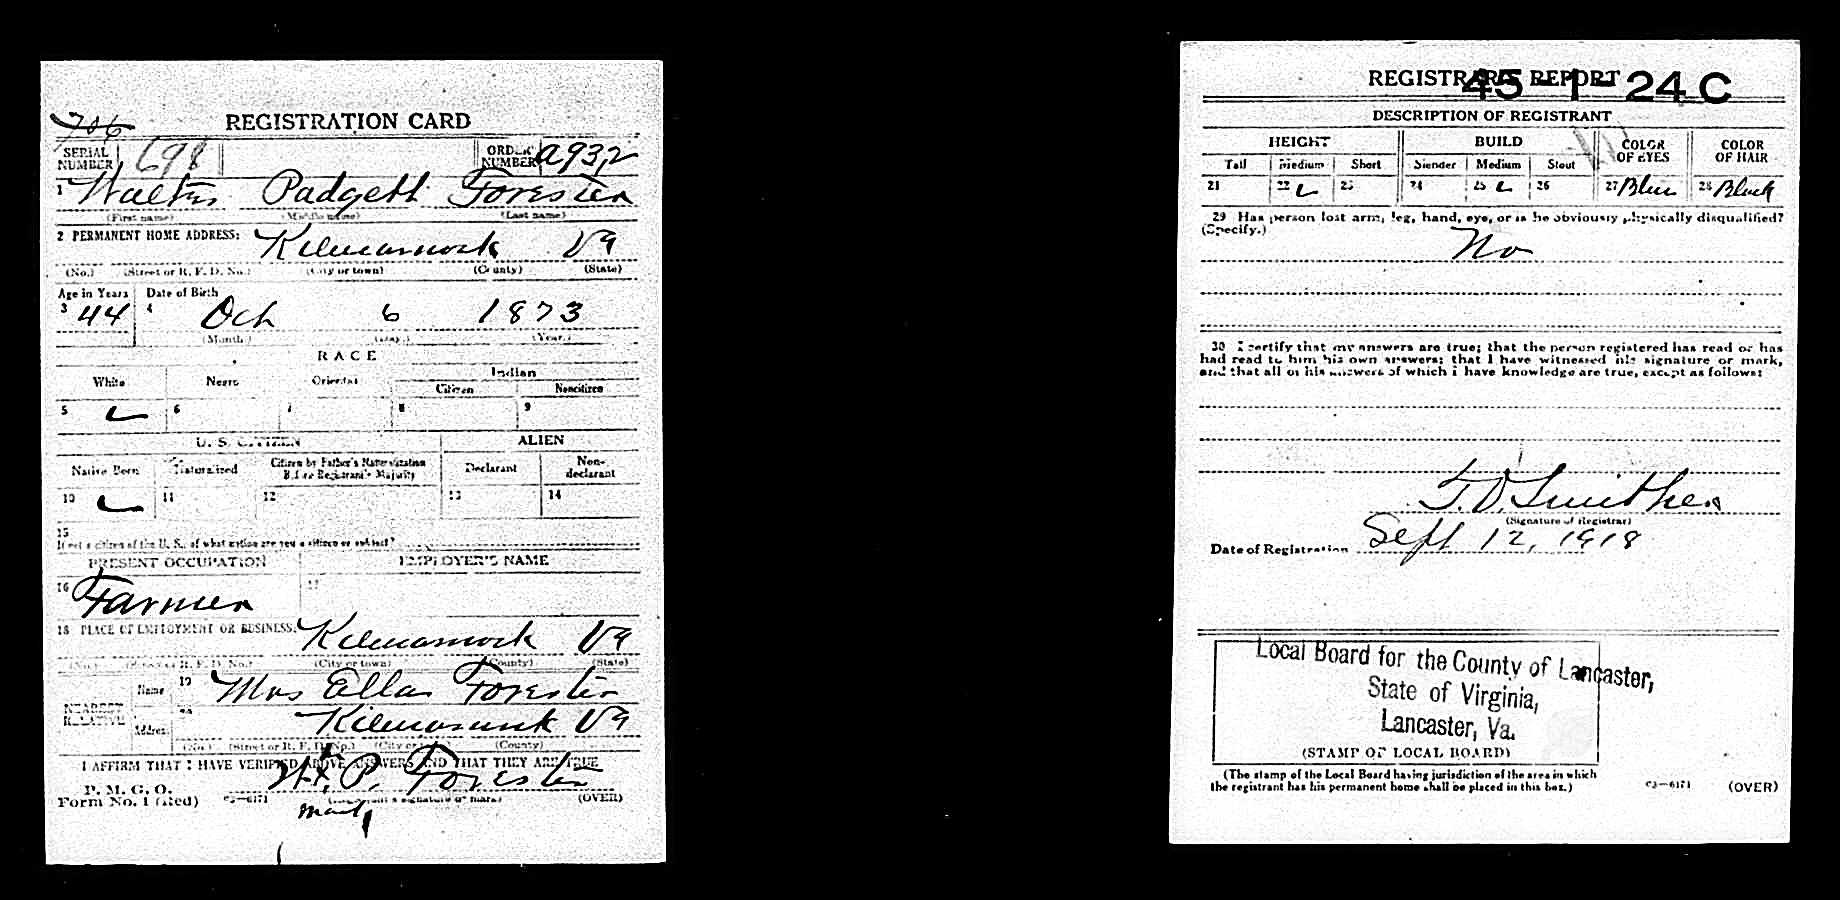 706
REGISTRATION CARD
SERIAL NUMBER 698 ORDER NUMBER A932
1 Walter Padgett Forester
(First name) (Middle name) (Last name)
2 PERMANENT HOME ADDRESS: Kilmarnock Va
(No.) (Street or R. F. D. No.) (City or town) (County) (State)
Age in Years Date of Birth
3 44 4 Oct 6 1873
(Month) (Day) (Year)
RACE
White Negro Oriental Indian
Citizen Noncitizen
5 6 7 8 9
U. S. CITIZEN ALIEN
Native Born Naturalized Citizen by Father's Naturalization Before Registrant's Majority Declarant Non-declarant
10 11 12 13 14
15
If not a citizen of the U. S., of what nation are you a citizen or subject?
PRESENT OCCUPATION EMPLOYER'S NAME
16 Farmer 17
18 PLACE OF EMPLOYMENT OR BUSINESS: Kilmarnock Va
(No.) (Street or R. F. D. No.) (City or town) (County) (State)
NEAREST RELATIVE Name 19 Mrs Ella Forester
Address 20 Kilmarnock Va
(No.) (Street or R. F. D. No.) (City or (County)
I AFFIRM THAT I HAVE VERIFIED ABOVE ANSWERS AND THAT THEY ARE TRUE
P. M. G. O.
Form No. 1 (Red) 03—6171 W. P. Forester
(Registrant's signature or mark) (OVER)
mark
REGISTRAR'S REPORT
45-1-24 C
DESCRIPTION OF REGISTRANT
HEIGHT BUILD COLOR OF EYES COLOR OF HAIR
Tall Medium Short Slender Medium Stout
21 22 23 24 25 26 27 Blue 28 Black
29 Has person lost arm, leg, hand, eye, or is he obviously physically disqualified?
(Specify.)
No
30 I certify that my answers are true; that the person registered has read or has
had read to him his own answers; that I have witnessed his signature or mark,
and that all of his answers of which I have knowledge are true, except as follows:
T. D. Smither
(Signature of Registrar)
Date of Registration Sept 12, 1918
Local Board for the County of Lancaster,
State of Virginia,
Lancaster, Va.
(STAMP OF LOCAL BOARD)
(The stamp of the Local Board having jurisdiction of the area in which
the registrant has his permanent home shall be placed in this box.)
03—6171 (OVER)